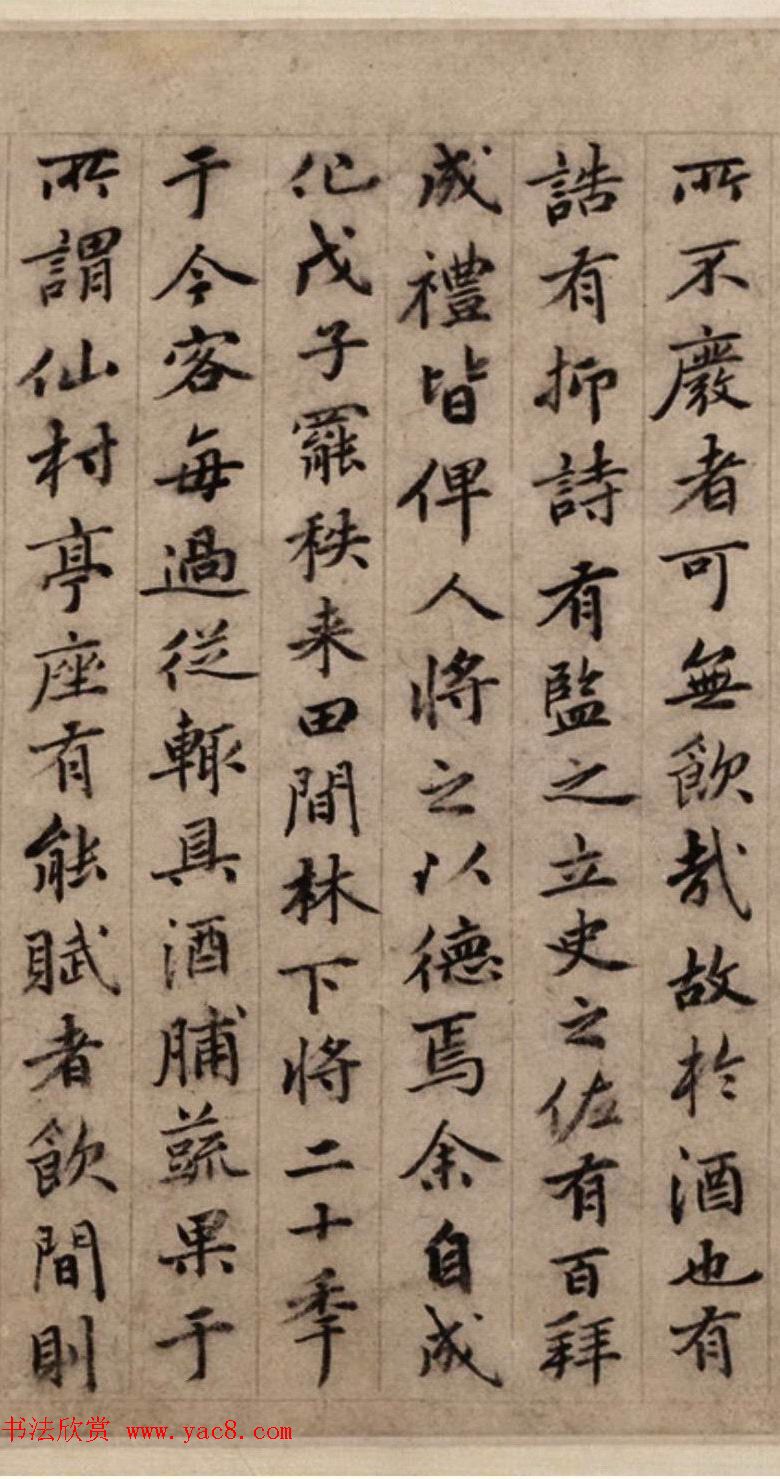 所不廢者可無飲哉故於酒也有
誥有抑詩有監之立史之佐有百拜
成禮皆俾人將之以德焉余自成
化戊子罷秩来田間林下將二十季
于今客每過從輒具酒脯蔬果于
所謂仙村亭座有能賦者飲間則
书法欣赏 www.yac8.com